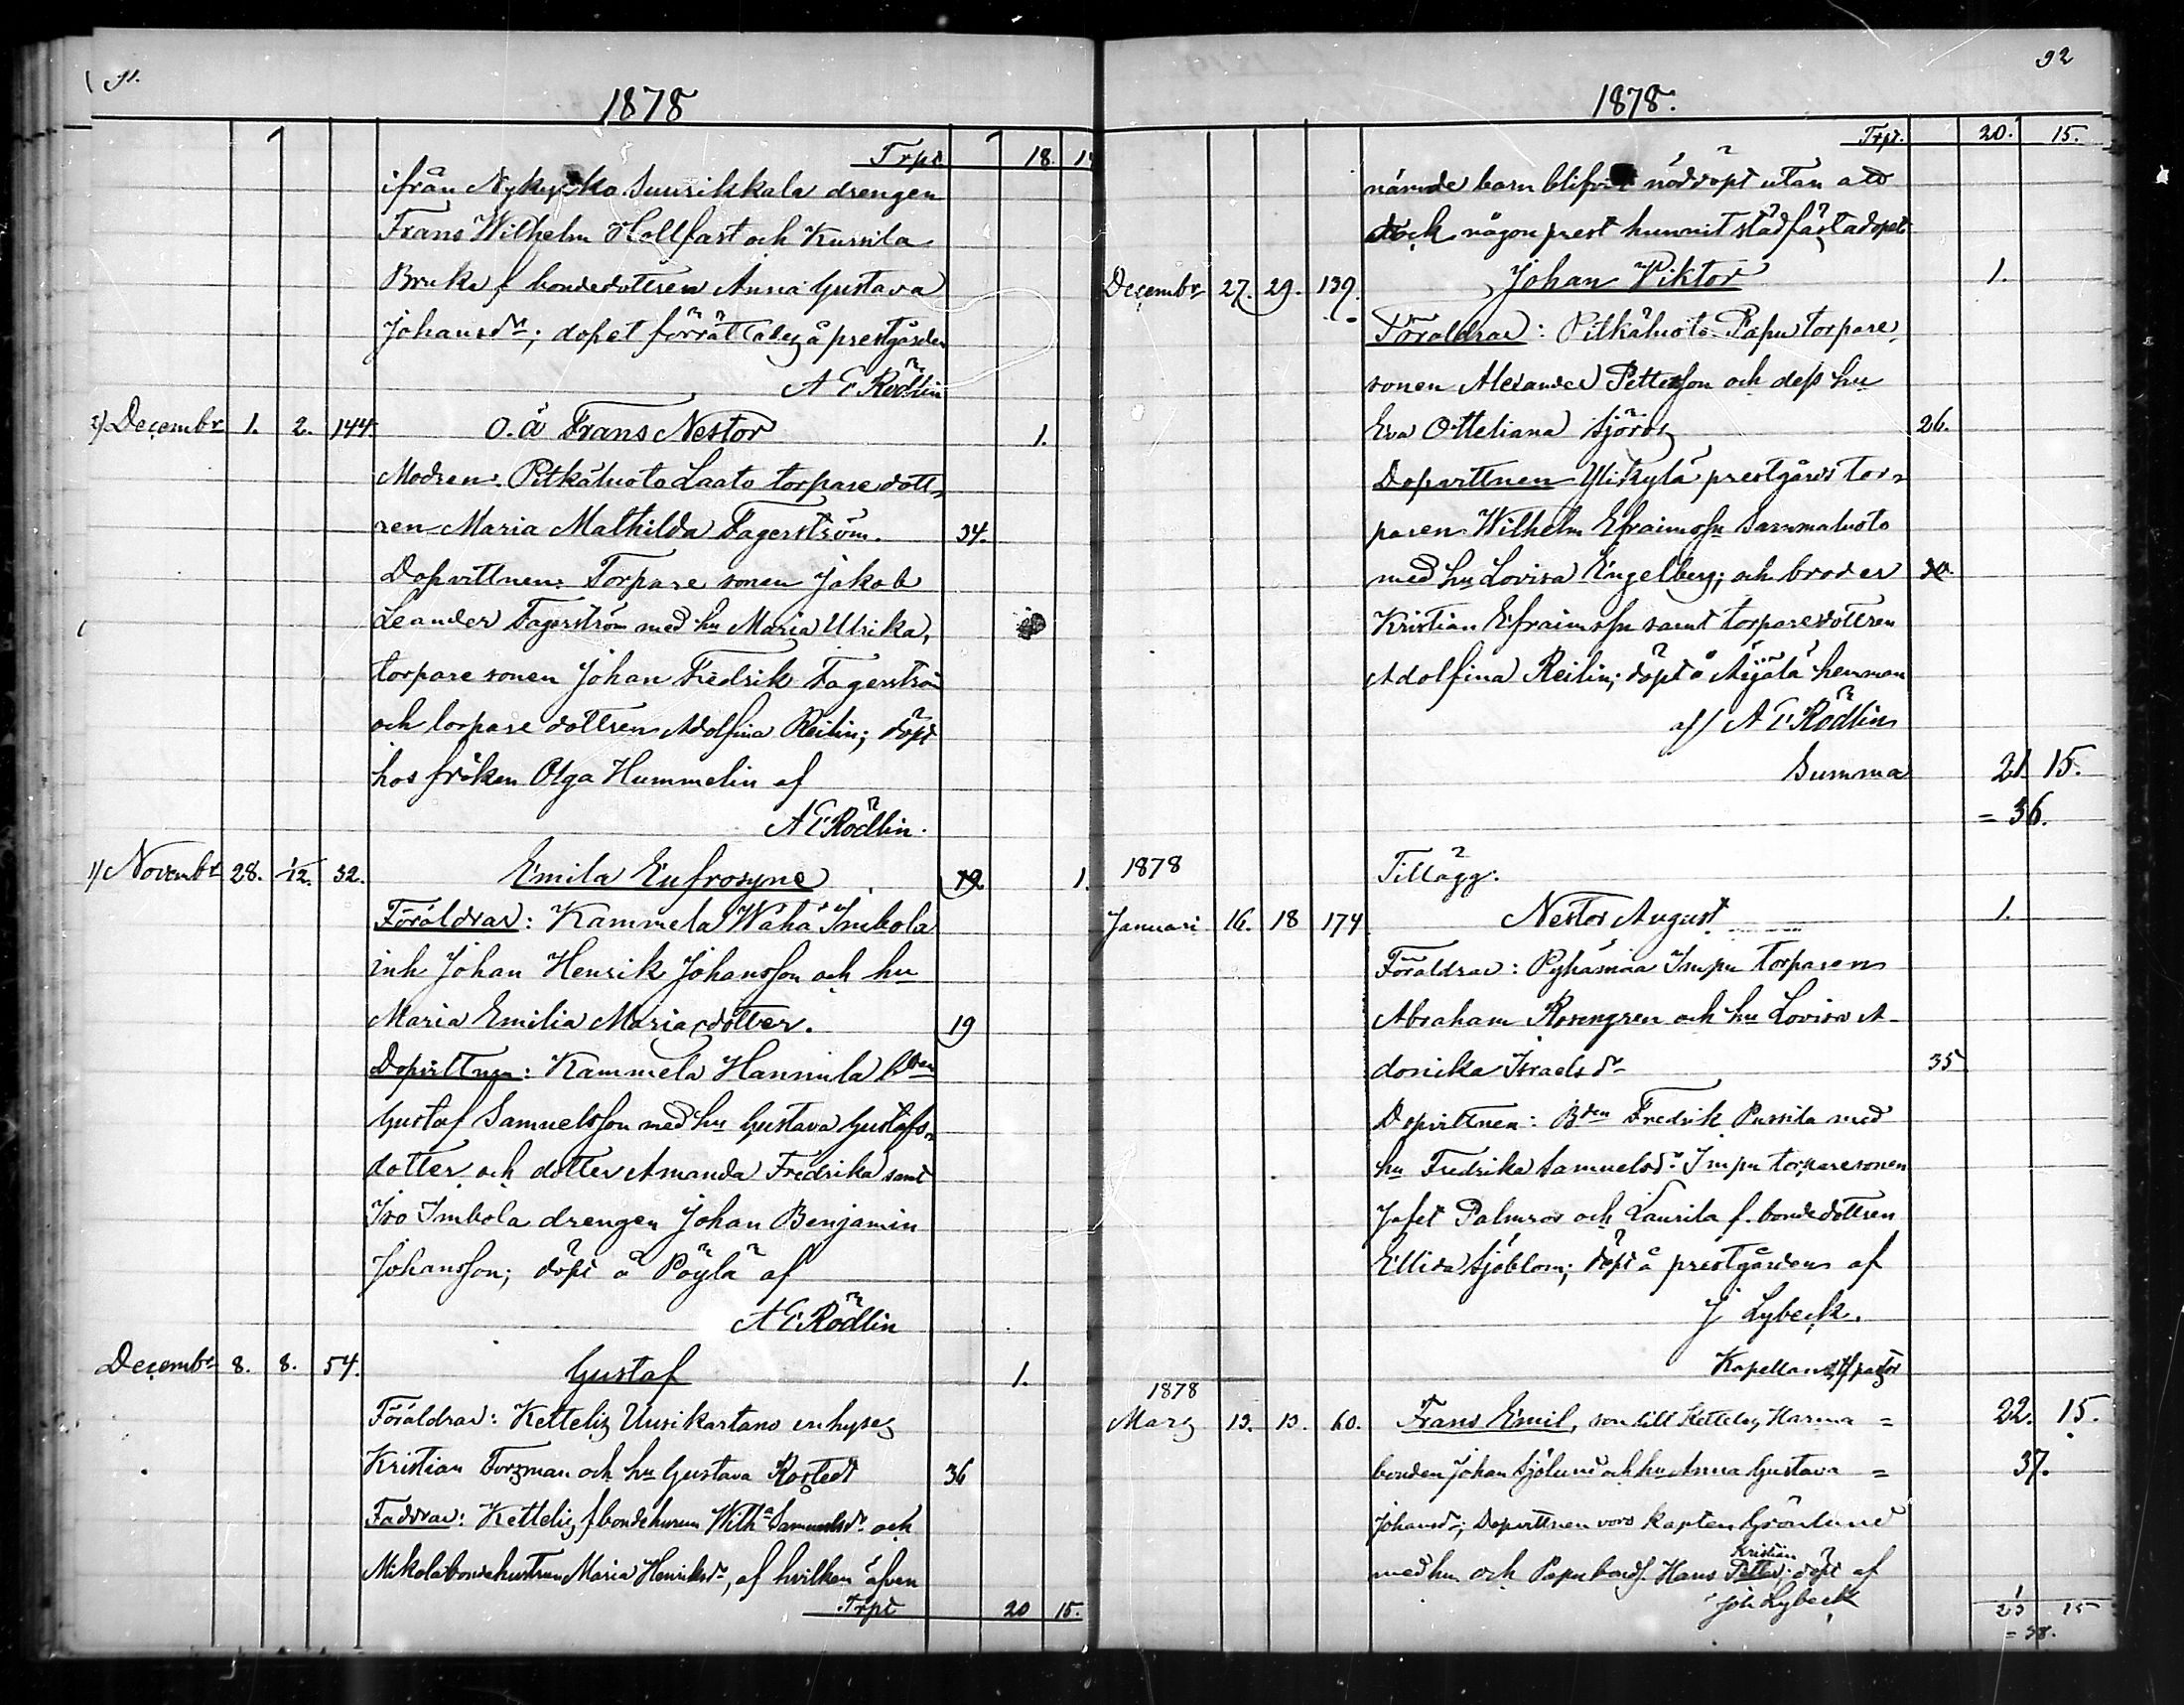 91.
1878
Trpt 18. 14
ifrån Nykyrko Suurikkala drengen
Frans Wilhelm Hollfast och Kussila
Bruka f bondedottren Anna Gustava
Johansdr; dopet förrättades å prestgården
A E Rödlin
2) Decembr 1. 2. 144. O.ä Frans Nestor 1.
Modren: Pitkäluoto Laato torpare dott-
ren Maria Mathilda Fagerström. 34.
Dopvittnen: Torpare sonen Jakob
Leander Fagerström med hu Maria Ulrika,
torpare sonen Johan Fredrik Fagerström
och torpare dottren Adolfina Reilin; döpt
hos fröken Olga Hummelin af
A E Rödlin.
1) Novembr 28. 1/12. 32. Emila Eufrosyne 19 1.
Föräldrar: Kammela Wähä Imbola
inh Johan Henrik Johansson och hu
Maria Emilia Mariædotter. 19
Dopvittnen: Kammela Hannula bden
Gustaf Samuelsson med hu Gustava Gustafs-
dotter och dotter Amanda Fredrika samt
Iso Imbola drengen Johan Benjamin
Johansson; döpt å Pöylä af
A E Rödlin
Decembr 8. 8. 54. Gustaf 1.
Föräldrar: Kettelis Uusikartano enhyses
Kristian Forsman och hu Gustava Rostedt 36
Faddrar: Kettelis f bondehurun Wilha Samuelsdr och
Mikola bondehustrun Maria Henriksdr, af hvilken äfven
Trpt 20 15.
92
1878.
Trpt. 20. 15.
nämde barn blifvit nöddöpt utan att
dock någon prest hunnit städfästa dopet
Decembr 27. 29. 139. Johan Viktor 1.
Föräldrar: Pitkäluoto Papu torpare
sonen Alexander Pettersson och dess hu
Eva Otteliana Sjöros 26.
Dopvittnen Ylikylä prestgårds tor-
paren Wilhelm Efraimssn Sammaluoto
med hu Lovisa Engelberg; och broder
Kristian Efraimssn samt torparedottren
Adolfina Reilin; döpt å Äijälä hemman
af/ A E Rödlin
Summa 21. 15.
= 36.
1878 Tillägg:
Januari 16. 18 174 Nestor August 1.
Föräldrar: Pyhämaa Impu torparen
Abraham Rosengren och hu Lovisa A-
donika Israelsdr 35
Dopvittnen: Bden Fredrik Pussila med
hu Fredrika Samuelsdr Impu torparesonen
Jafet Palmros och Laurila f. bondedottren
Ellida Sjöblom; döpt å prestgården af
J Lybeck.
Kapellans pastor
1878
Mars 13. 13. 60. Frans Emil, son till Kettelis Harma = 22. 15.
bonden Johan Sjölund och hu Anna Gustava = 37.
Johansdr; Dopvittnen voro kapten Grönlund
med hu och Papu bondf. Hans Kristian Petter; döpt af
Joh Lybeck
23 15
= 38.